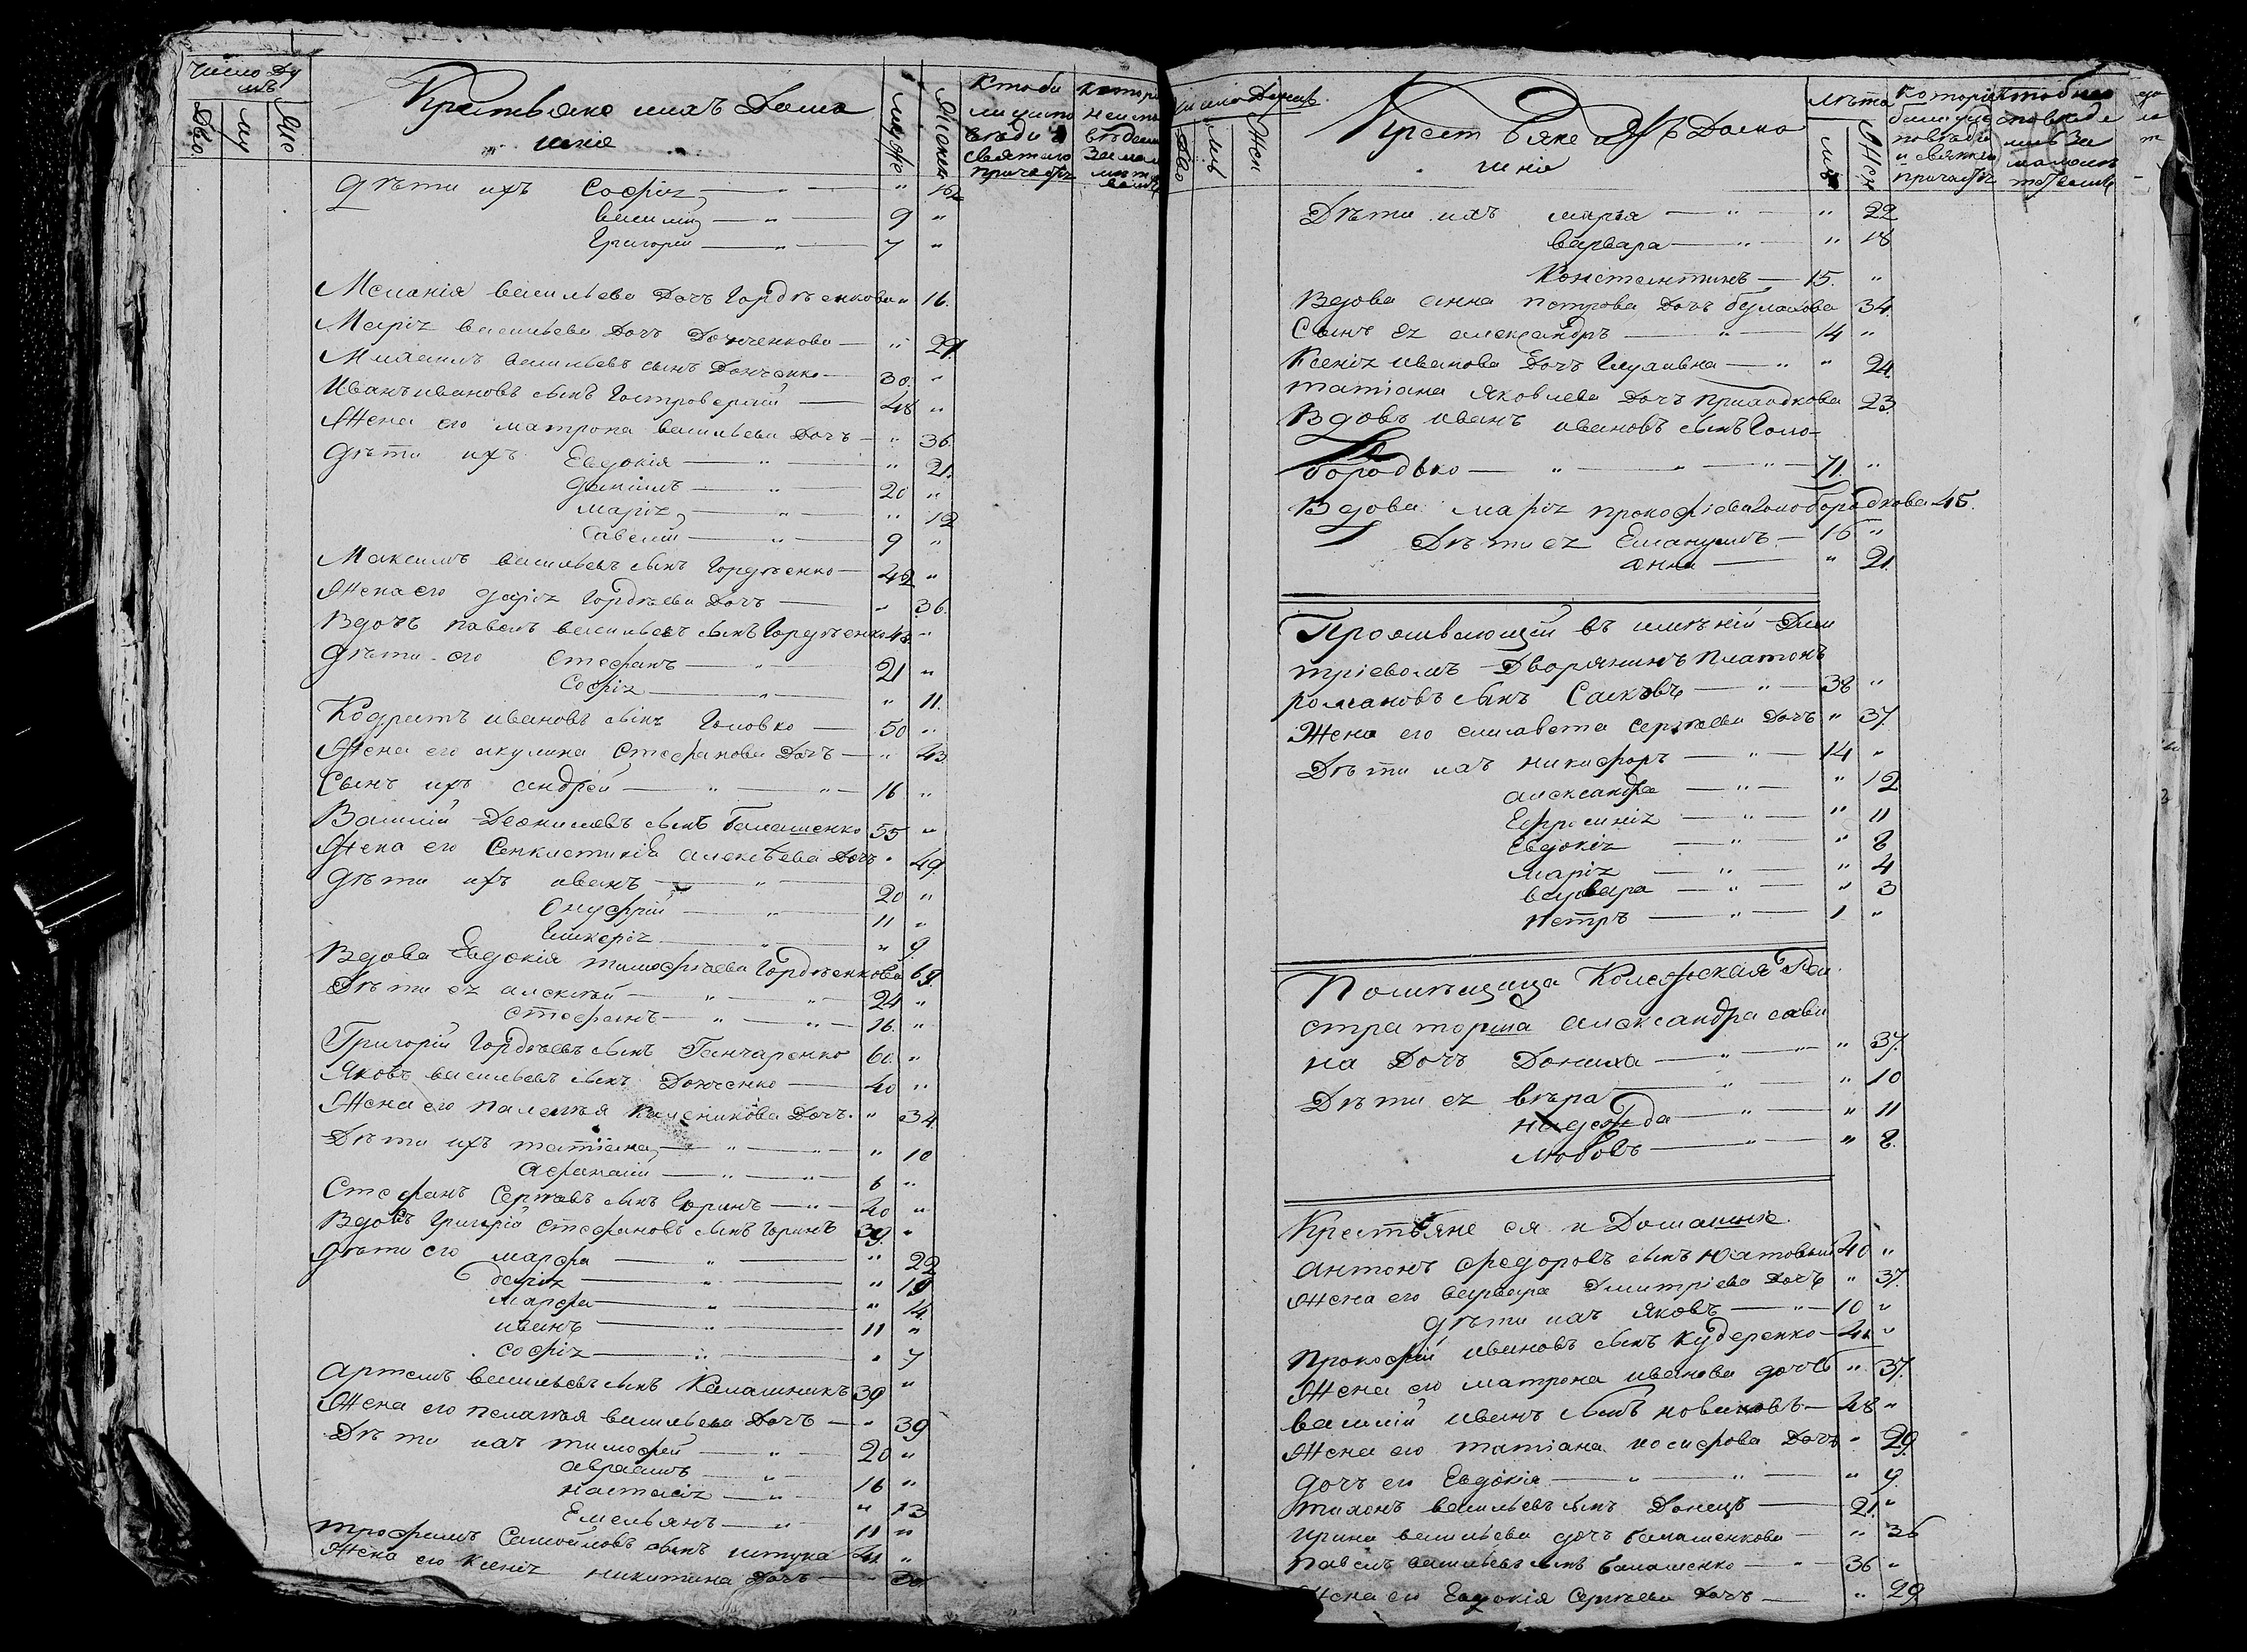 Число Ду
шъ
Дво.
му
Же
Крестьяне ихъ Дома
шнiе
муже
Женск
Кто бы
ли у испо
вѣди и
святаго
причастія
Дѣти ихъ Софія — " — " 16
василій — " — 9 "
Григорій — " — 7 "
Меланія васильева Дочь Гордѣенкова " 16.
Марія васильева Дочь Донченкова — " 29
Михаилъ васильевъ сынъ Донченко — 30. "
Иванъ ивановъ сынъ Гостроверхій — 48 "
Жена его матрона васильева Дочь — " 36.
Дѣти ихъ Евдокія — " — " 21.
Даніилъ — " — 20 "
марія — " — " 12
Савелій — " — 9 "
Максимъ васильевъ сынъ Гордѣенко — 42 "
Жена его Дарія Гордѣева Дочь — " 36.
Вдовъ павелъ васильевъ сынъ Гордѣенко 43 "
Дѣти его Стефанъ — " — 21 "
Софія — " — " 11.
Кодратъ ивановъ сынъ Головко — 50 "
Жена его акулина Стефанова Дочь — " 43
Сынъ ихъ андрей — " — " — 16 "
Василій Деонисіевъ сынъ Балашенко 55 "
Жена его Сенклетикія алексѣева Дочь " 49.
Дѣти ихъ иванъ — " — 20 "
Онуфрій — " — 11 "
Гликерія — " — " 9.
Вдова Евдокія тимофѣева Гордѣенкова 69.
Дѣти ея алексѣй — " — " — 24 "
Стефанъ — " — " — 16. "
Григорій Гордѣевъ сынъ Ганчаренко 60. "
Яковъ васильевъ сынъ Донченко — 40 "
Жена его палагія Каленикова Дочь. " 34
Дѣти ихъ татіана — " — " — " 10
афанасій — " — " — 6 "
Стефанъ Сергѣевъ сынъ Горинъ — " — 40 "
Вдовъ Григорій Стефановъ сынъ Горинъ 39. "
Дѣти его марфа — " — " 22
дарія — " — " 19
марфа — " — " 14.
иванъ — " — 11 "
софія — " — " 7
Артемъ васильевъ сынъ Калашникъ 39 "
Жена его пелагія васильева Дочь — " 39
Дѣти ихъ тимофей — " — 20 "
авраамъ — " — 16 "
настасія — " — " 13
Емельянъ — " — 11 "
трофимъ Самойловъ сынъ штука 41 "
Жена его Ксенія никитина Дочь — "
число Душъ.
Дво
мч
Жен
Крестьяне ихъ Дома
шнiе
лѣта
муж
Жен
Которіе
были у ис
повѣди
и святаго
причастія
Дѣти ихъ марія — " — " 22
варвара — " — " 18
Константинъ — 15. "
Вдова анна петрова Дочь булахова 34.
Сынъ ея александръ — " — 14 "
Ксенія иванова Дочь — " " 24.
татіана Яковлева Дочь приходкова 23.
Вдовъ иванъ ивановъ сынъ Голо-
бородько — " — " — " — 71. "
Вдова марія прокофіева Голобородкова 45.
Дѣти ея Емануилъ — 16 "
анна — " 21.
Проживающій въ имѣніи Дми
тріевомъ Дворянинъ платонъ
романовъ сынъ Саковъ — " — 38 "
Жена его елисавета сергѣева Дочь " 37.
Дѣти ихъ никифоръ — " — 14 "
александра — " — " 12
Ефросинія — " — " 11
Евдокія — " — " 8
марія — " — " 4
варвара — " — " 3
петръ — " — 1 "
Помѣщица Колежская Реи
страторша александра савви
на Дочь Дониха — " — " — " 37.
Дѣти ея вѣра — " — " 10
надежда — " — " 11
любовь — " — " 8.
Крестьяне ея и Домашніе.
антонъ федоровъ сынъ 40 "
Жена его варвара Дмитріева Дочь " 37.
Дѣти ихъ Яковъ — " — 10 "
Прокофій ивановъ сынъ Кудеренко — 41 "
Жена его матрона иванова дочь " 37.
василій иванъ сынъ новиковъ — 48 "
Жена его татіана иосифова Дочь " 29.
дочь его Евдокія — " — " — " 9.
тихонъ васильевъ сынъ Донецъ — 21. "
ирина васильева дочь балашенкова — " 36
павелъ васильевъ сынъ балашенко — " — 36 "
Жена его Евдокія Сергѣева Дочь — " 29